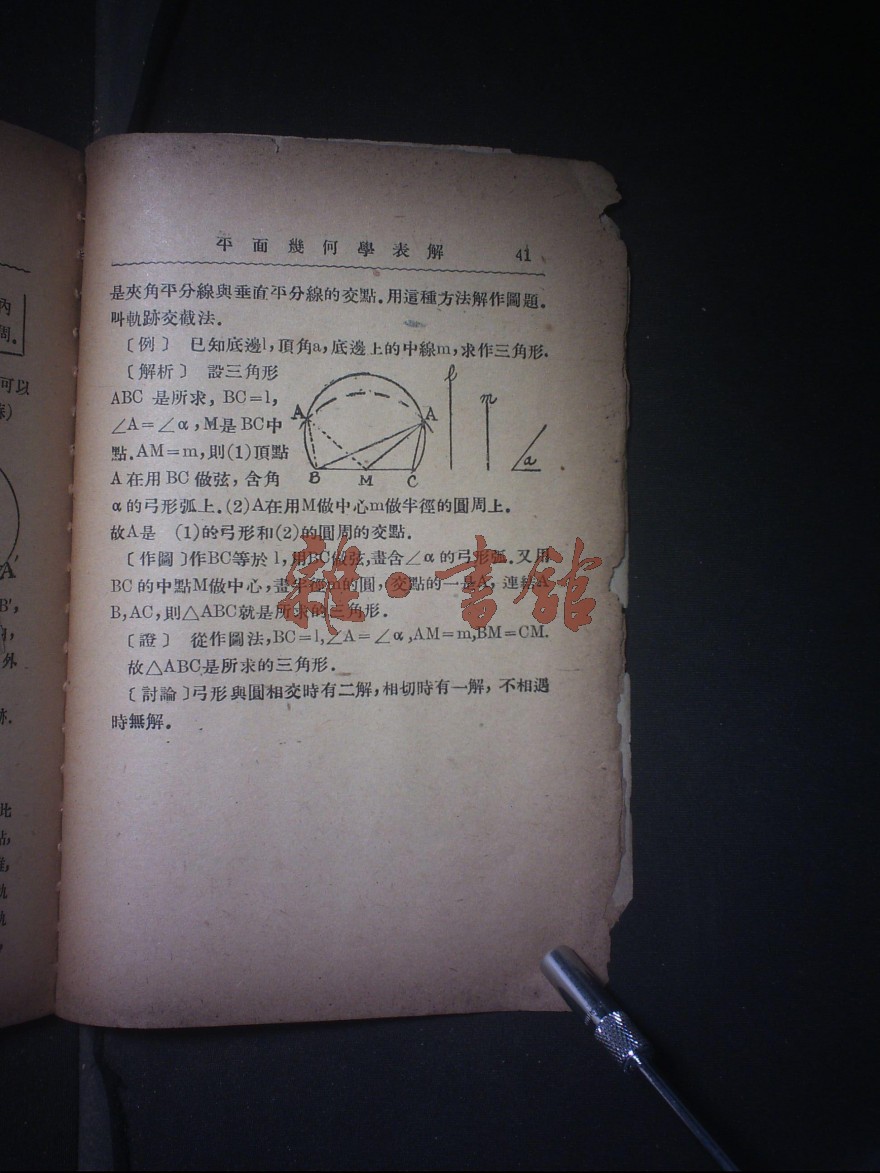 平面幾何學表解 41
是夾角平分線與垂直平分線的交點.用這種方法解作圖題.
叫軌跡交截法.
〔例〕 已知底邊l,頂角a,底邊上的中線m,求作三角形.
〔解析〕 設三角形
ABC 是所求, BC=l,
∠A=∠α,M是 BC中
點.AM=m,則(1)頂點
A在用 BC 做弦,含角
α的弓形弧上.(2)A在用M做中心m做半徑的圓周上.
故A是 (1)的弓形和(2)的圓周的交點.
〔作圖〕作BC等於 l,用BC做弦,畫含∠α的弓形弧.又用
BC 的中點M做中心,畫半徑m的圓,交點的一是A, 連結A
B,AC,則△ABC就是所求的三角形.
〔證〕 從作圖法,BC=l,∠A=∠α,AM=m,BM=CM.
故△ABC是所求的三角形.
〔討論〕弓形與圓相交時有二解,相切時有一解, 不相遇
時無解.
A A
B M C
l
a
雜·書館
內
周.
可以
A'
B',
外
跡.
此
點,
軌
軌